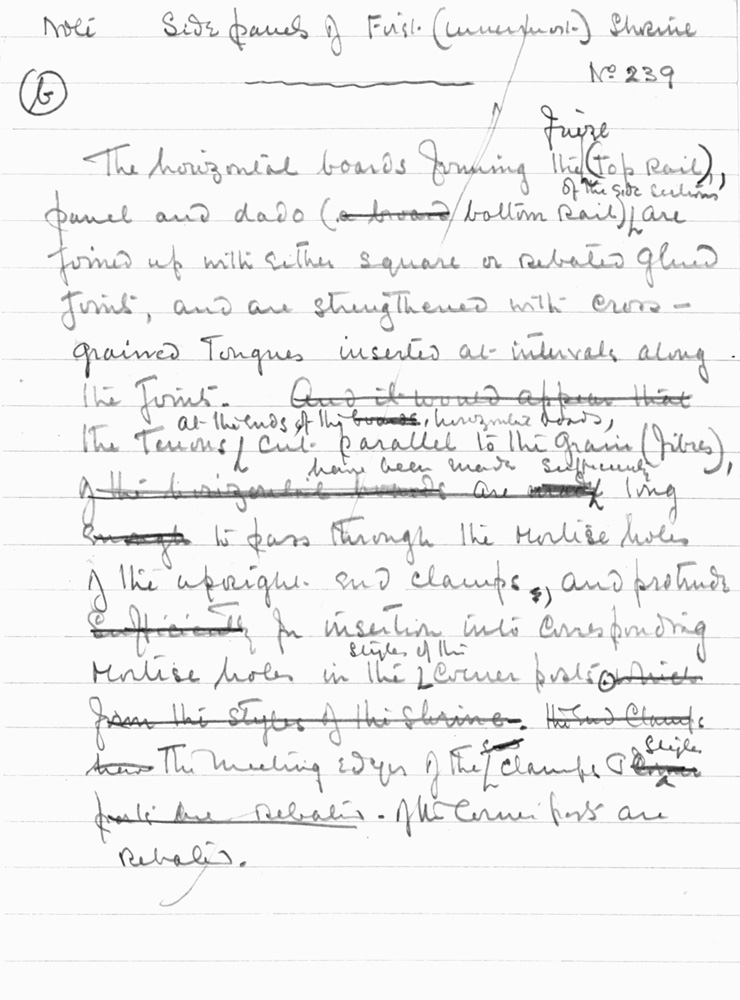 Note Side panels of First (innermost) Shrine
No 239
6
Frieze
The horizontal boards forming the (top rail),
of the side sections
panel and dado (a board bottom rail) are
joined up with either square or rebated glued
joints, and are strengthened with cross-
grained tongues inserted at intervals along
the joints. And it would appear that
at the ends of the boards, horizontal boards,
the tenons cut parallel to the grain (fibres),
have been made sufficiently
of the horizontal boards are made long
enough to pass through the mortise holes
of the upright end clamps, and protrude
sufficiently for insertion into corresponding
styles of the
mortise holes in the corner posts which
form the styles of the shrine. The end clamps
styles
have The meeting edges of the clamps & corner
posts are rebated. of the corner posts are
rebated.